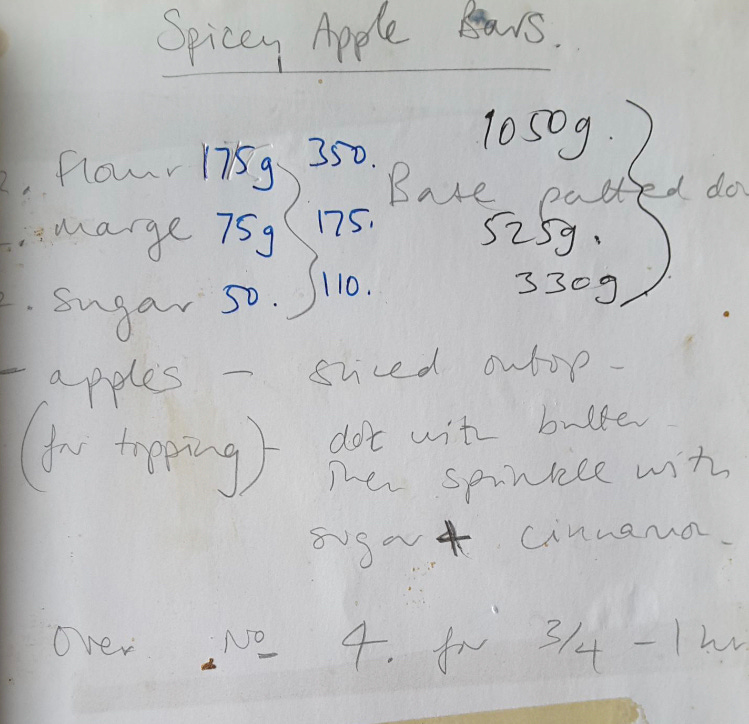 Spicey Apple Bars.
1050g.
2. flour 175g 350.
Base patted
marge 75g 175. 525g.
2. sugar 50. 110. 330g
- apples - sliced ontop -
(for topping) - dot with butter -
then sprinkle with
sugar + cinnamon -
Oven No 4. for 3/4 - 1 hr